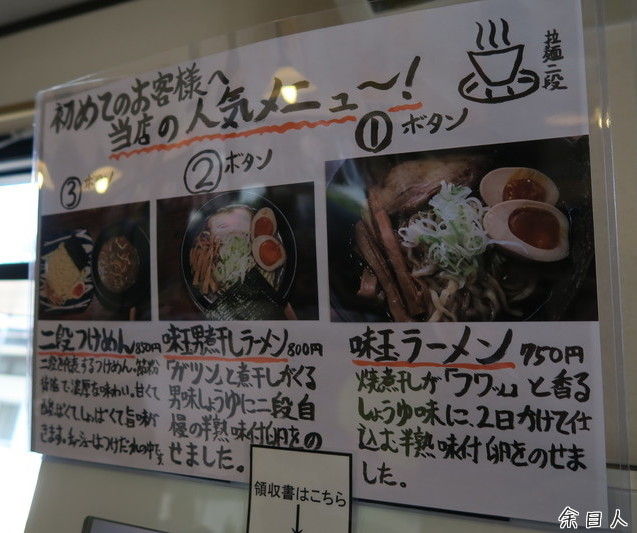 初めてのお客様へ
当店の人気メニュー〜!
拉麺二段
①ボタン
味玉ラーメン 750円
焼煮干しが「フワッ」と香る
しょうゆ味に、2日かけて仕
込む半熟味付卵をのせま
した。
②ボタン
味玉男煮干しラーメン 800円
「ガツン」と煮干しがくる
男味しょうゆに二段自
慢の半熟味付卵をの
せました。
③ボタン
二段つけめん 850円
二段を代表するつけめん。
濃厚な味わい。甘くて
しょっぱくて旨味が
きます。チャーシューはつけだれの中で
領収書はこちら
↓
余目人